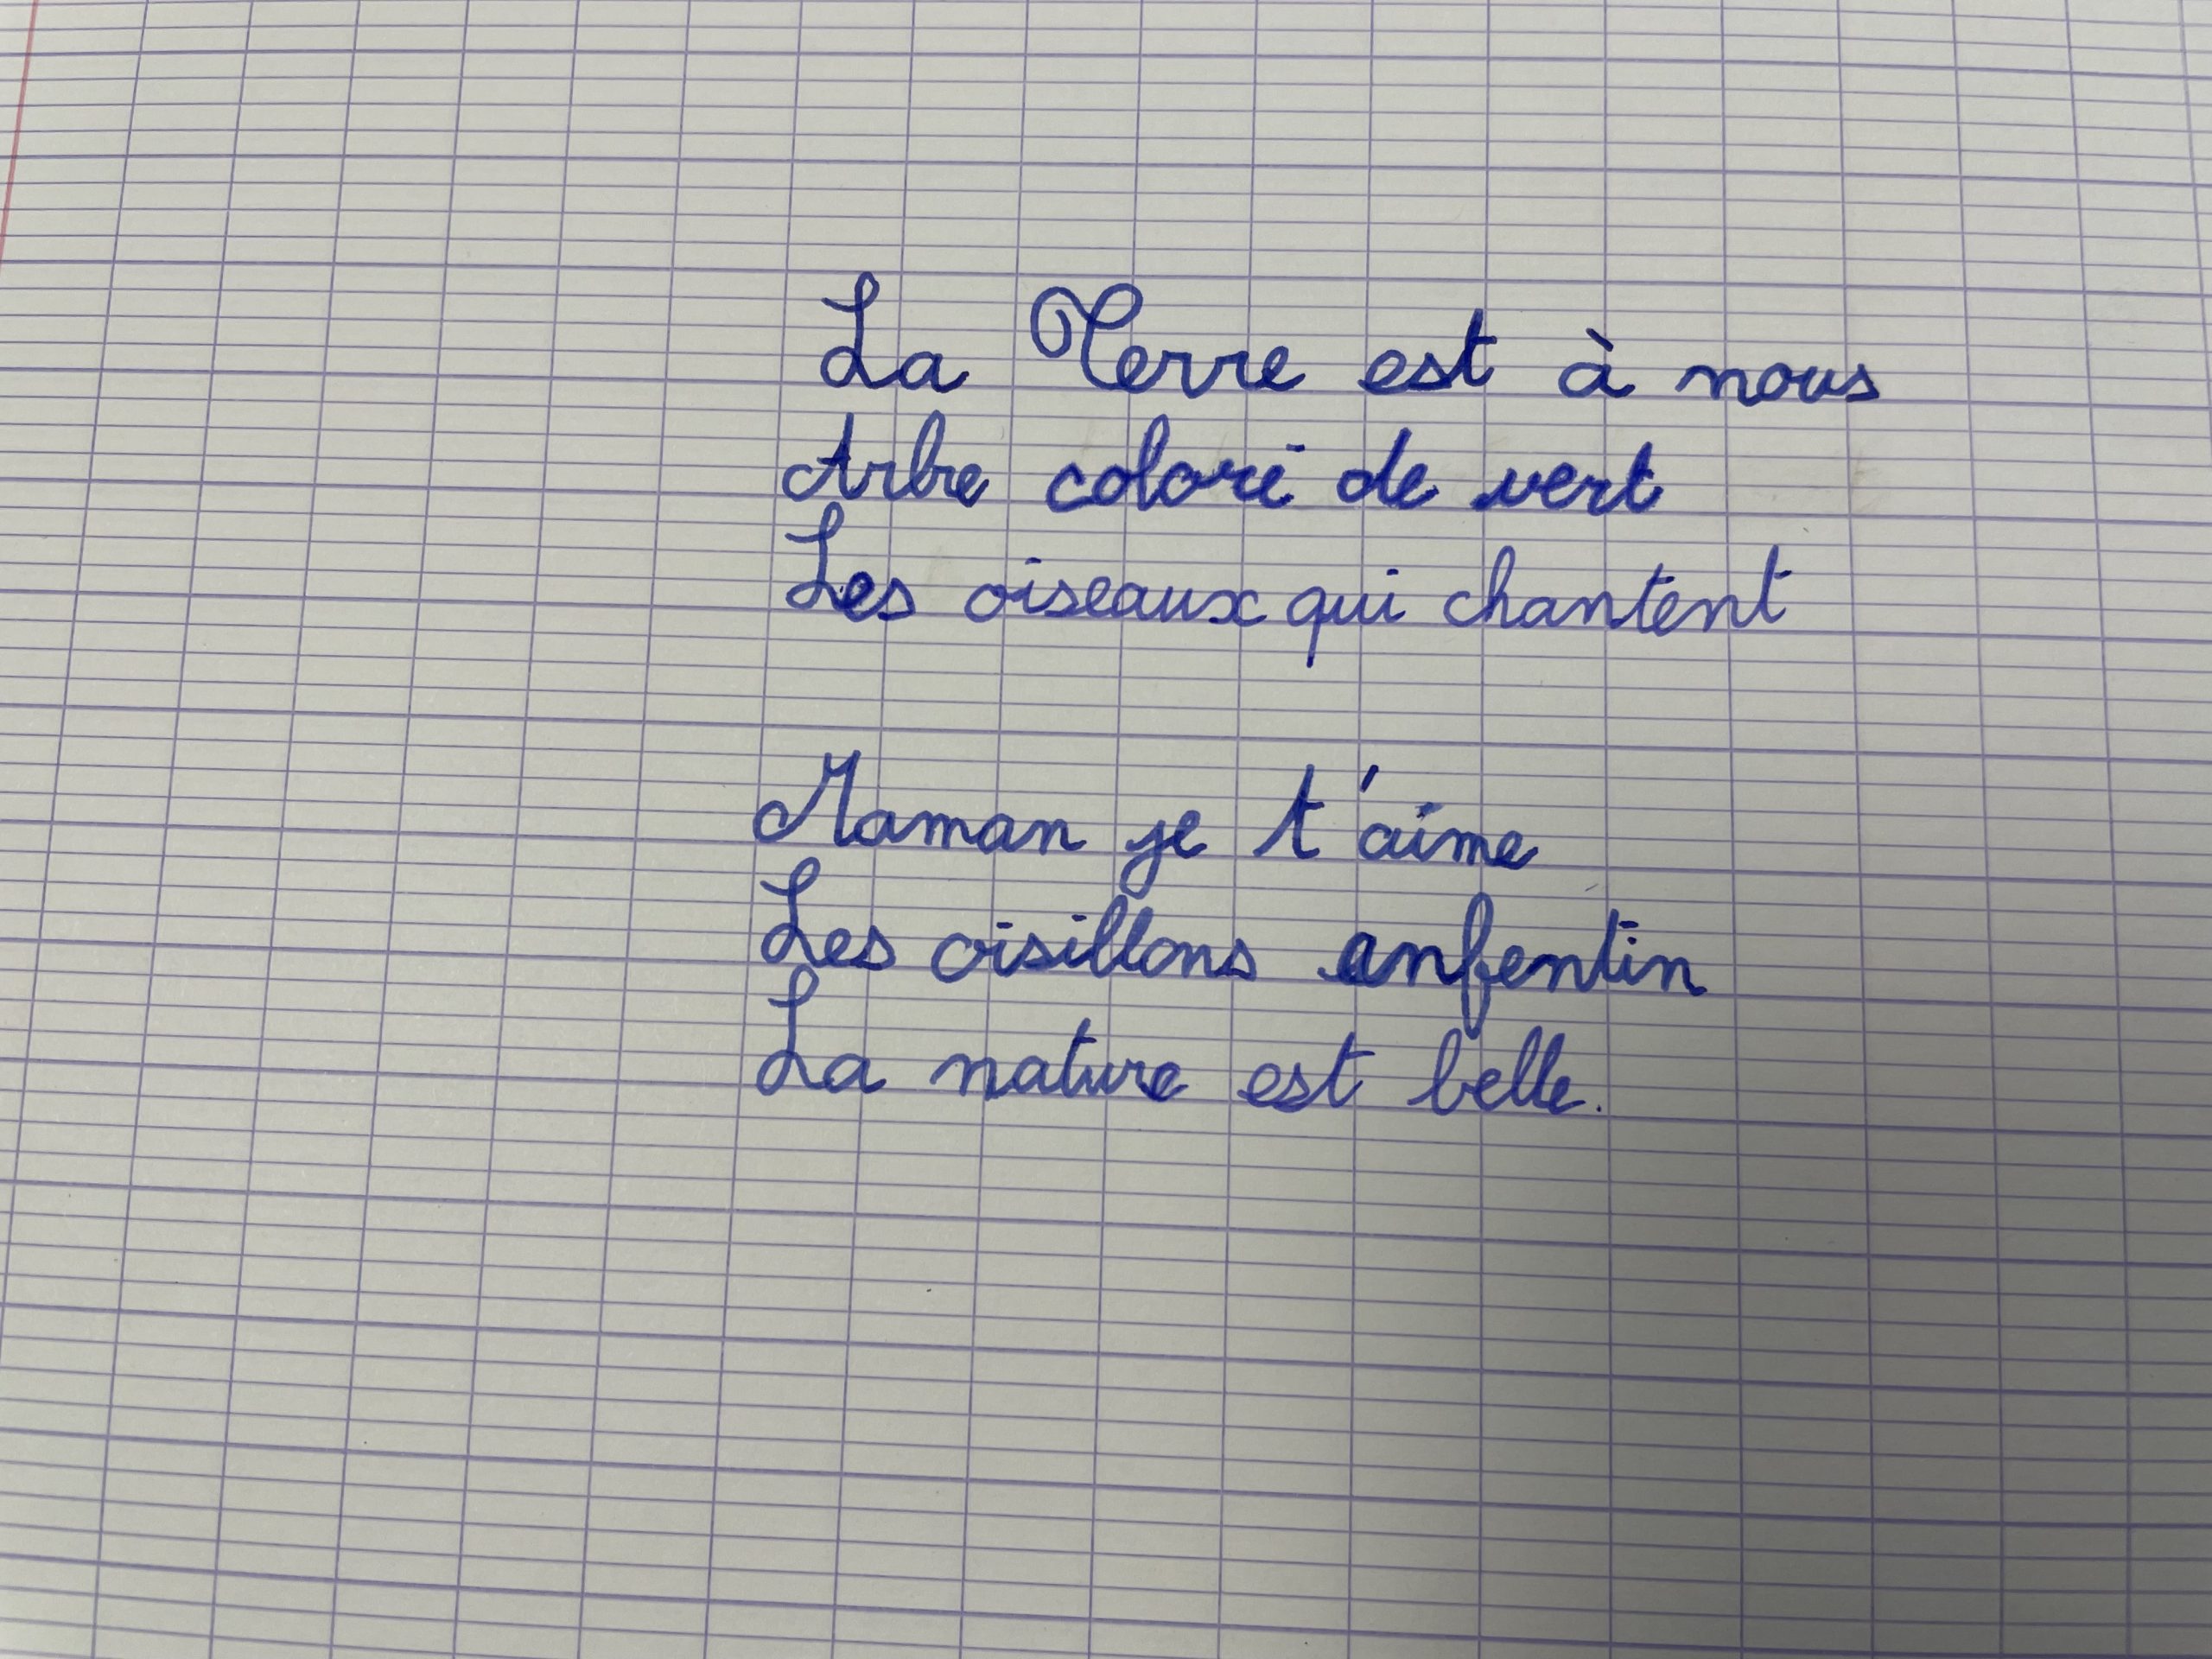 La Terre est à nous
Arbre colorié de vert
Les oiseaux qui chantent
Maman je t'aime
Les oisillons enfentin
La nature est belle.